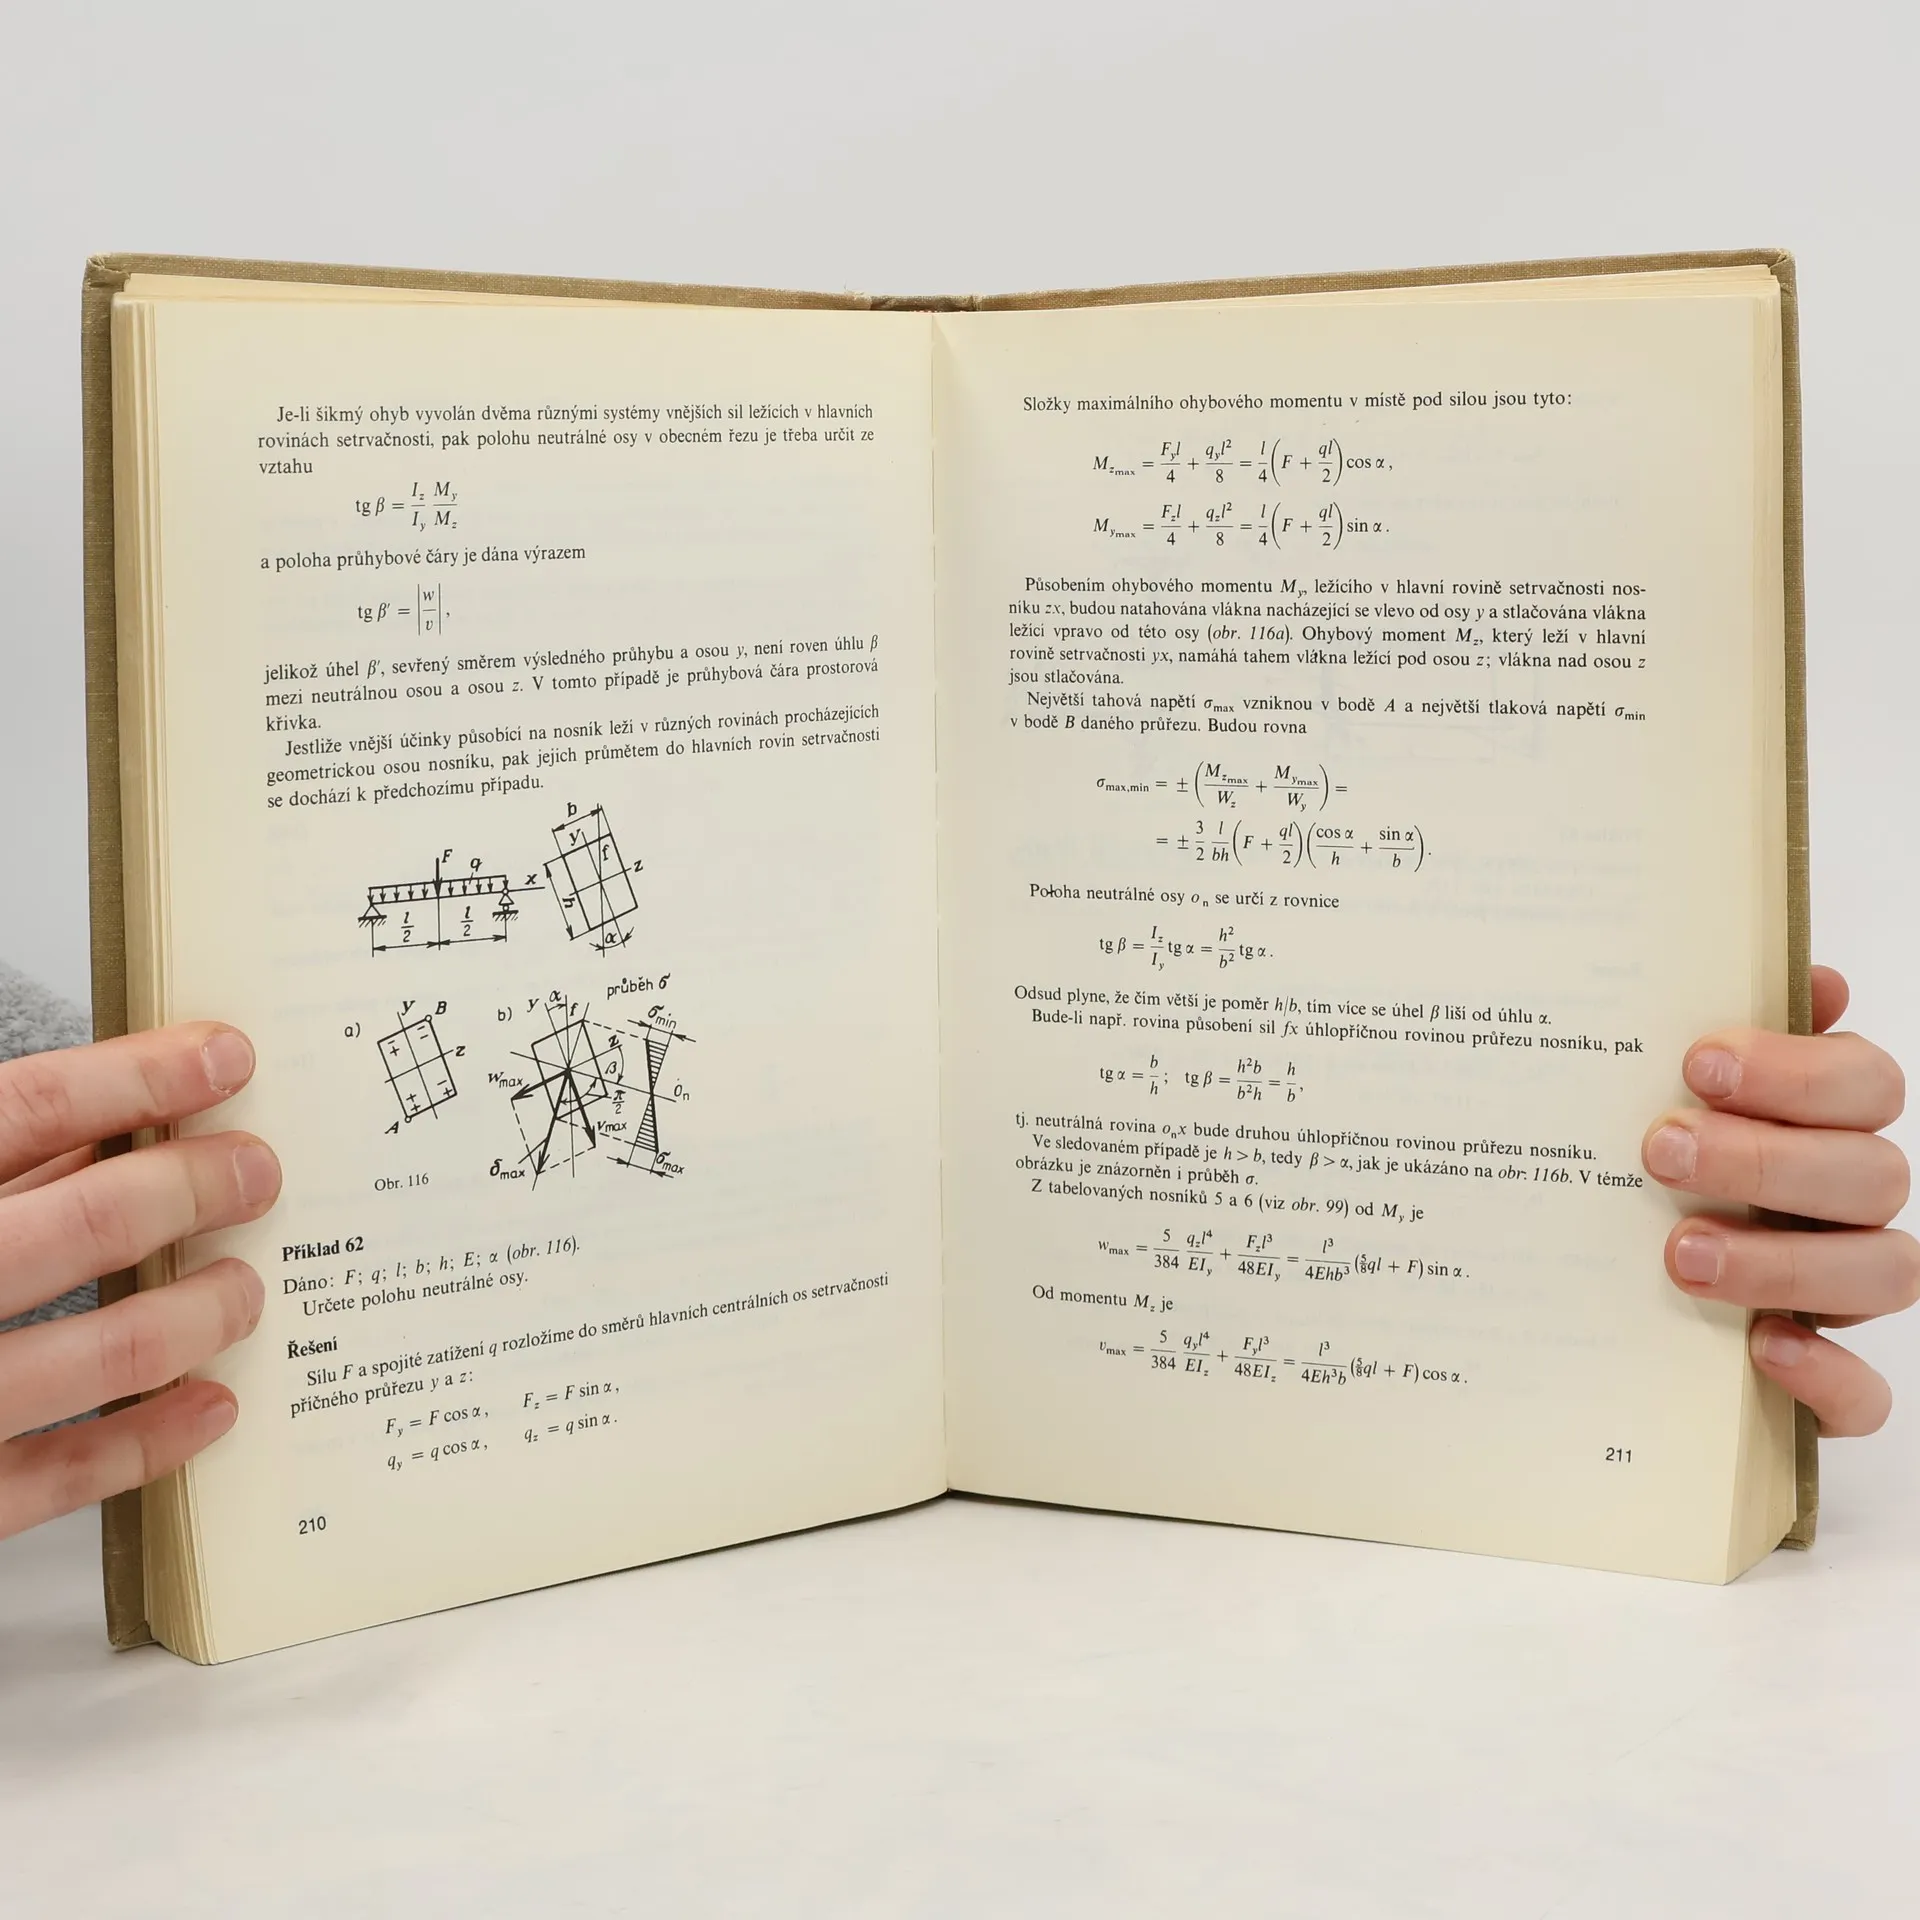 Je-li šikmý ohyb vyvolán dvěma různými systémy vnějších sil ležících v hlavních
rovinách setrvačnosti, pak polohu neutrálné osy v obecném řezu je třeba určit ze
vztahu
tg β = I_z/I_y M_y/M_z
a poloha průhybové čáry je dána výrazem
tg β′ = |w/v|,
jelikož úhel β′, sevřený směrem výsledného průhybu a osou y, není roven úhlu β
mezi neutrálnou osou a osou z. V tomto případě je průhybová čára prostorová
křivka.
Jestliže vnější účinky působící na nosník leží v různých rovinách procházejících
geometrickou osou nosníku, pak jejich průmětem do hlavních rovin setrvačnosti
se dochází k předchozímu případu.
F q x l/2 l/2
b y f z h α
a) y B z A
b) y α f z β π/2 w_max v_max δ_max
průběh σ
σ_min o_n σ_max
Obr. 116
Příklad 62
Dáno: F; q; l; b; h; E; α (obr. 116).
Určete polohu neutrálné osy.
Řešení
Sílu F a spojité zatížení q rozložíme do směrů hlavních centrálních os setrvačnosti
příčného průřezu y a z:
F_y = F cos α, F_z = F sin α,
q_y = q cos α, q_z = q sin α.
210
Složky maximálního ohybového momentu v místě pod silou jsou tyto:
M_zmax = F_y l/4 + q_y l²/8 = l/4 (F + ql/2) cos α,
M_ymax = F_z l/4 + q_z l²/8 = l/4 (F + ql/2) sin α.
Působením ohybového momentu M_y, ležícího v hlavní rovině setrvačnosti nos-
níku zx, budou natahována vlákna nacházející se vlevo od osy y a stlačována vlákna
ležící vpravo od této osy (obr. 116a). Ohybový moment M_z, který leží v hlavní
rovině setrvačnosti yx, namáhá tahem vlákna ležící pod osou z; vlákna nad osou z
jsou stlačována.
Největší tahová napětí σ_max vzniknou v bodě A a největší tlaková napětí σ_min
v bodě B daného průřezu. Budou rovna
σ_max,min = ± (M_zmax/W_z + M_ymax/W_y) =
= ± 3/2 l/bh (F + ql/2)(cos α/h + sin α/b).
Poloha neutrálné osy o_n se určí z rovnice
tg β = I_z/I_y tg α = h²/b² tg α.
Odsud plyne, že čím větší je poměr h/b, tím více se úhel β liší od úhlu α.
Bude-li např. rovina působení sil fx úhlopříčnou rovinou průřezu nosníku, pak
tg α = b/h; tg β = h²b/b²h = h/b,
tj. neutrálná rovina o_n x bude druhou úhlopříčnou rovinou průřezu nosníku.
Ve sledovaném případě je h > b, tedy β > α, jak je ukázáno na obr. 116b. V témže
obrázku je znázorněn i průběh σ.
Z tabelovaných nosníků 5 a 6 (viz obr. 99) od M_y je
w_max = 5/384 q_z l⁴/EI_y + F_z l³/48EI_y = l³/4Ehb³ (⅝ql + F) sin α.
Od momentu M_z je
v_max = 5/384 q_y l⁴/EI_z + F_y l³/48EI_z = l³/4Eh³b (⅝ql + F) cos α.
211